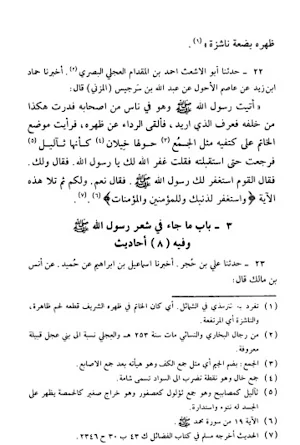 ظهره بضعة ناشزة» (١).
٢٢ - حدثنا أبو الاشعث احمد بن المقدام العجلي البصري (٢). أخبرنا حماد
ابن زيد عن عاصم الأحول عن عبد الله بن سرجيس (المزني) قال:
« أتيت رسول الله ﷺ وهو في ناس من اصحابه فدرت هكذا
من خلفه فعرف الذي اريد، فألقى الرداء عن ظهره، فرأيت موضع
الخاتم على كتفيه مثل الجمع (٣) حولها خيلان (٤) كأنها ثآليل (٥)
فرجعت حتى استقبلته فقلت غفر الله لك يا رسول الله. فقال ولك.
فقال القوم استغفر لك رسول الله ﷺ. فقال نعم. ولكم ثم تلا هذه
الآية ﴿واستغفر لذنبك وللمؤمنين والمؤمنات﴾ (٦). (٧).
٣ - باب ما جاء في شعر رسول الله ﷺ
وفيه (٨) أحاديث
٢٣ - حدثنا علي بن حُجر. أخبرنا اسماعيل بن ابراهيم عن حُميد. عن أنس
بن مالك قال:
(١) تفرد به الترمذي في الشمائل. أي كان الخاتم في ظهره الشريف قطعه لحم ظاهرة،
والناشزة أي المرتفعة.
(٢) من رجال البخاري والنسائي مات سنة ٢٥٣ هـ والعجلي نسبة الى بني عجل قبيلة
معروفة.
(٣) الجمع: بضم الجم أي مثل جمع الكف وهو هيأته بعد جمع الاصابع.
(٤) جمع خال وهو نقطة تضرب الى السواد تسمى شامة.
(٥) ثآليل كمصابيح وهو جمع ثؤلول كعصفور وهو خراج صغير كالحمصة يظهر على
الجسد له نتوء واستدارة.
(٦) الآية ١٩ من سورة محمد ﷺ.
(٧) الحديث أخرجه مسلم في كتاب الفضائل ك ٤٣ ب ٣٠ ح ٢٣٤٦.